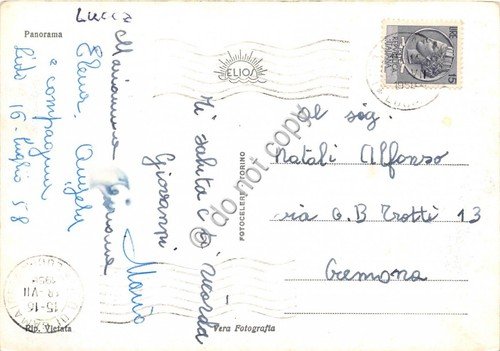 Panorama
Lucia
Marianna
Elena Angela
e compagnia
Lido 16 Luglio 58
Mario
Ti saluta e ti ricorda
Giovanni
ELIO
FOTOCELERE TORINO
Al sig.
Natali Alfonso
via G.B Trotti 13
Cremona
15-16
Rip. Vietata
Vera Fotografia
15
do not copy